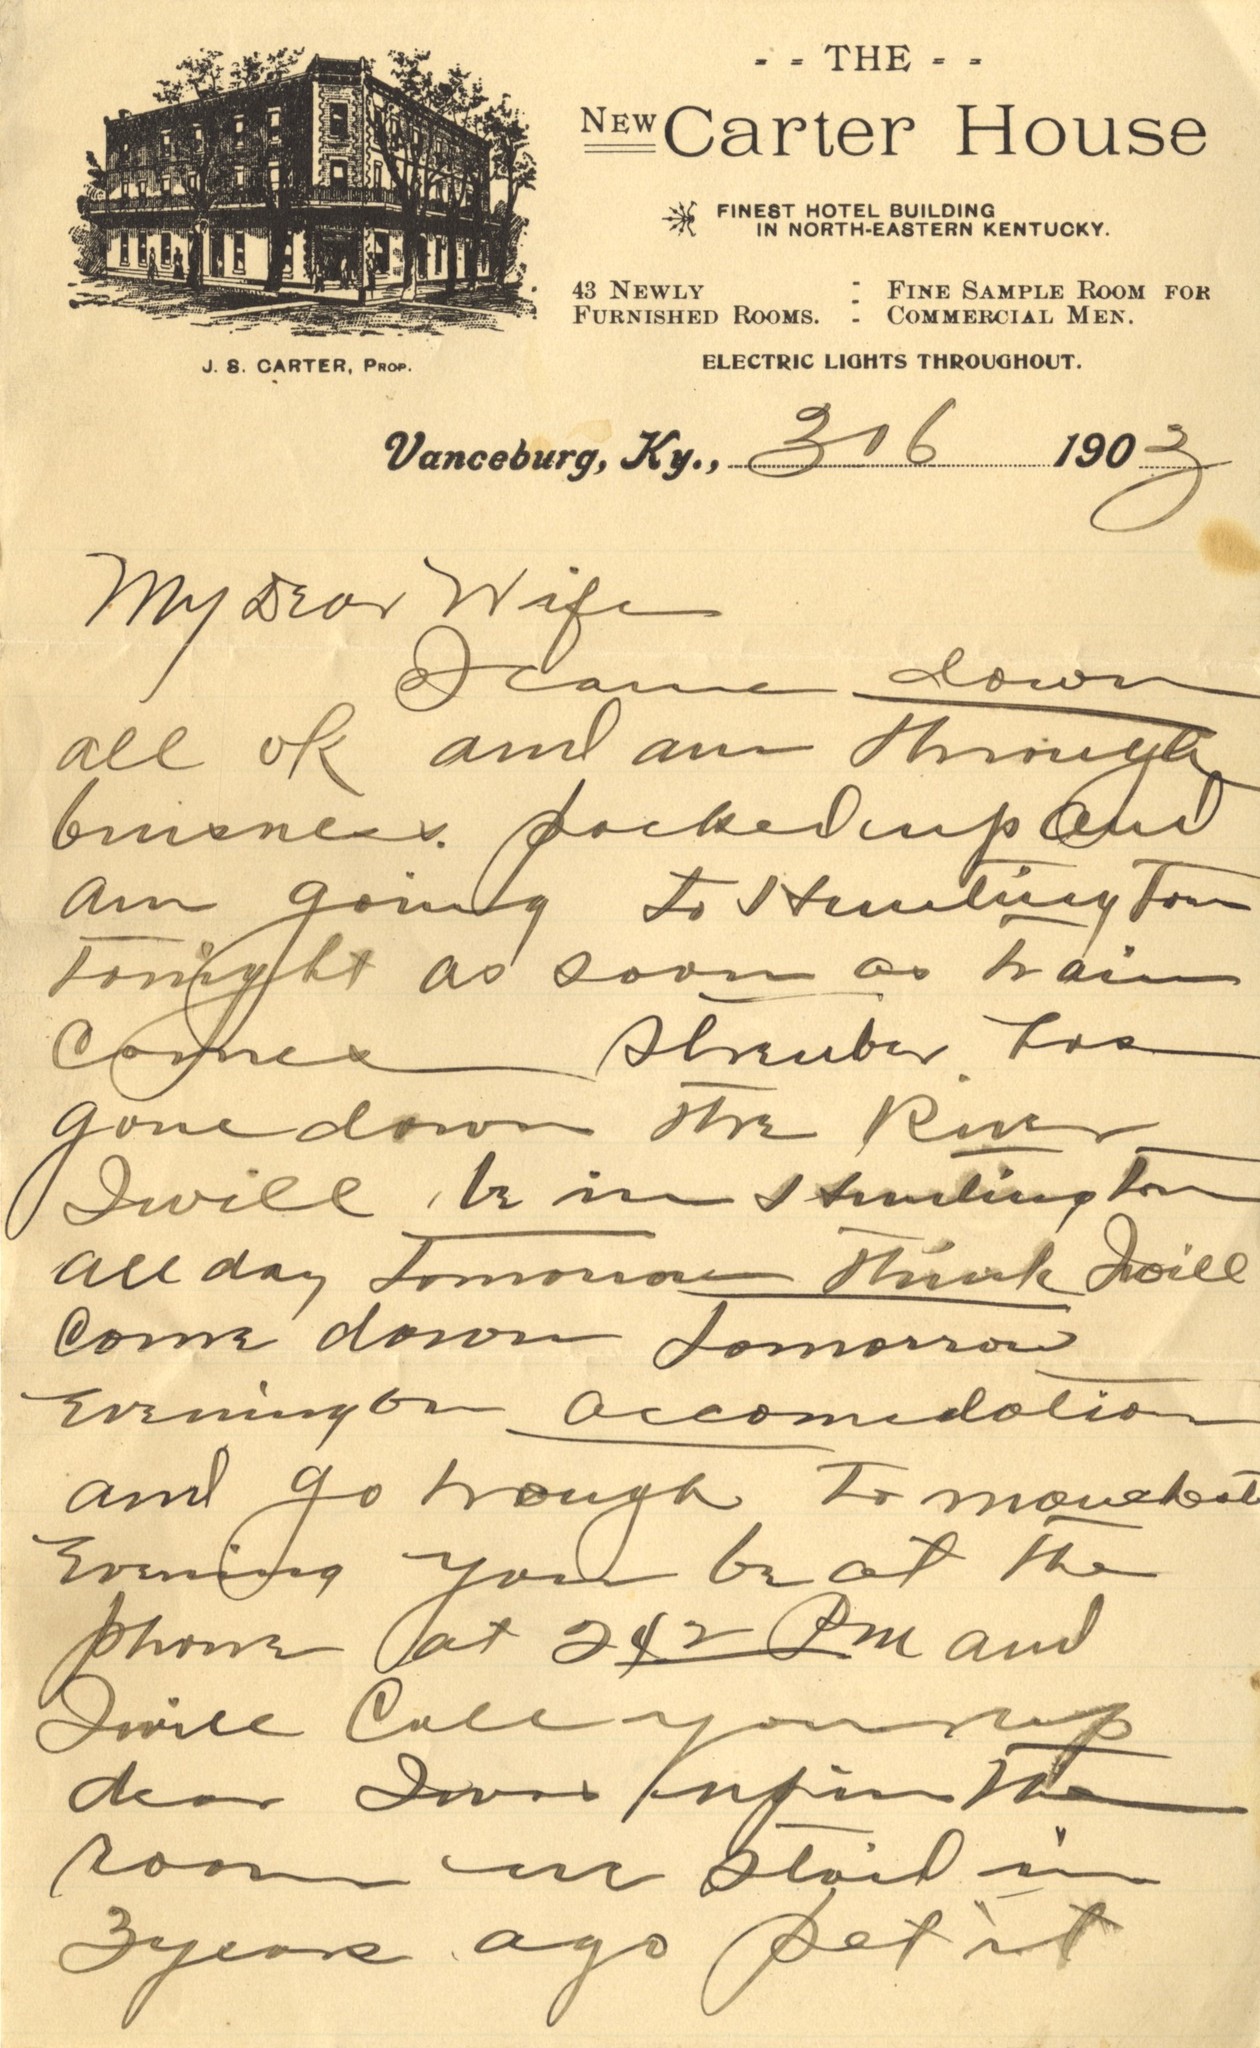 - - THE - -
NEW Carter House
FINEST HOTEL BUILDING
IN NORTH-EASTERN KENTUCKY.
43 NEWLY : FINE SAMPLE ROOM FOR
FURNISHED ROOMS. : COMMERCIAL MEN.
J. S. CARTER, PROP.
ELECTRIC LIGHTS THROUGHOUT.
Vanceburg, Ky., 306 1903
My Dear Wife
I came down
all ok and am through
buisness. packed up and
am going to Huntington
Tonight as soon as train
Comes Streuber has
gone down the River
I will be in Huntington
all day tomorrow think I will
Come down tomorrow
Evening on accomedation
and go trough to
Evening you be at the
phone at 242 PM and
I will Call you up
dear I was up in the
room we staid in
3 years ago pet it